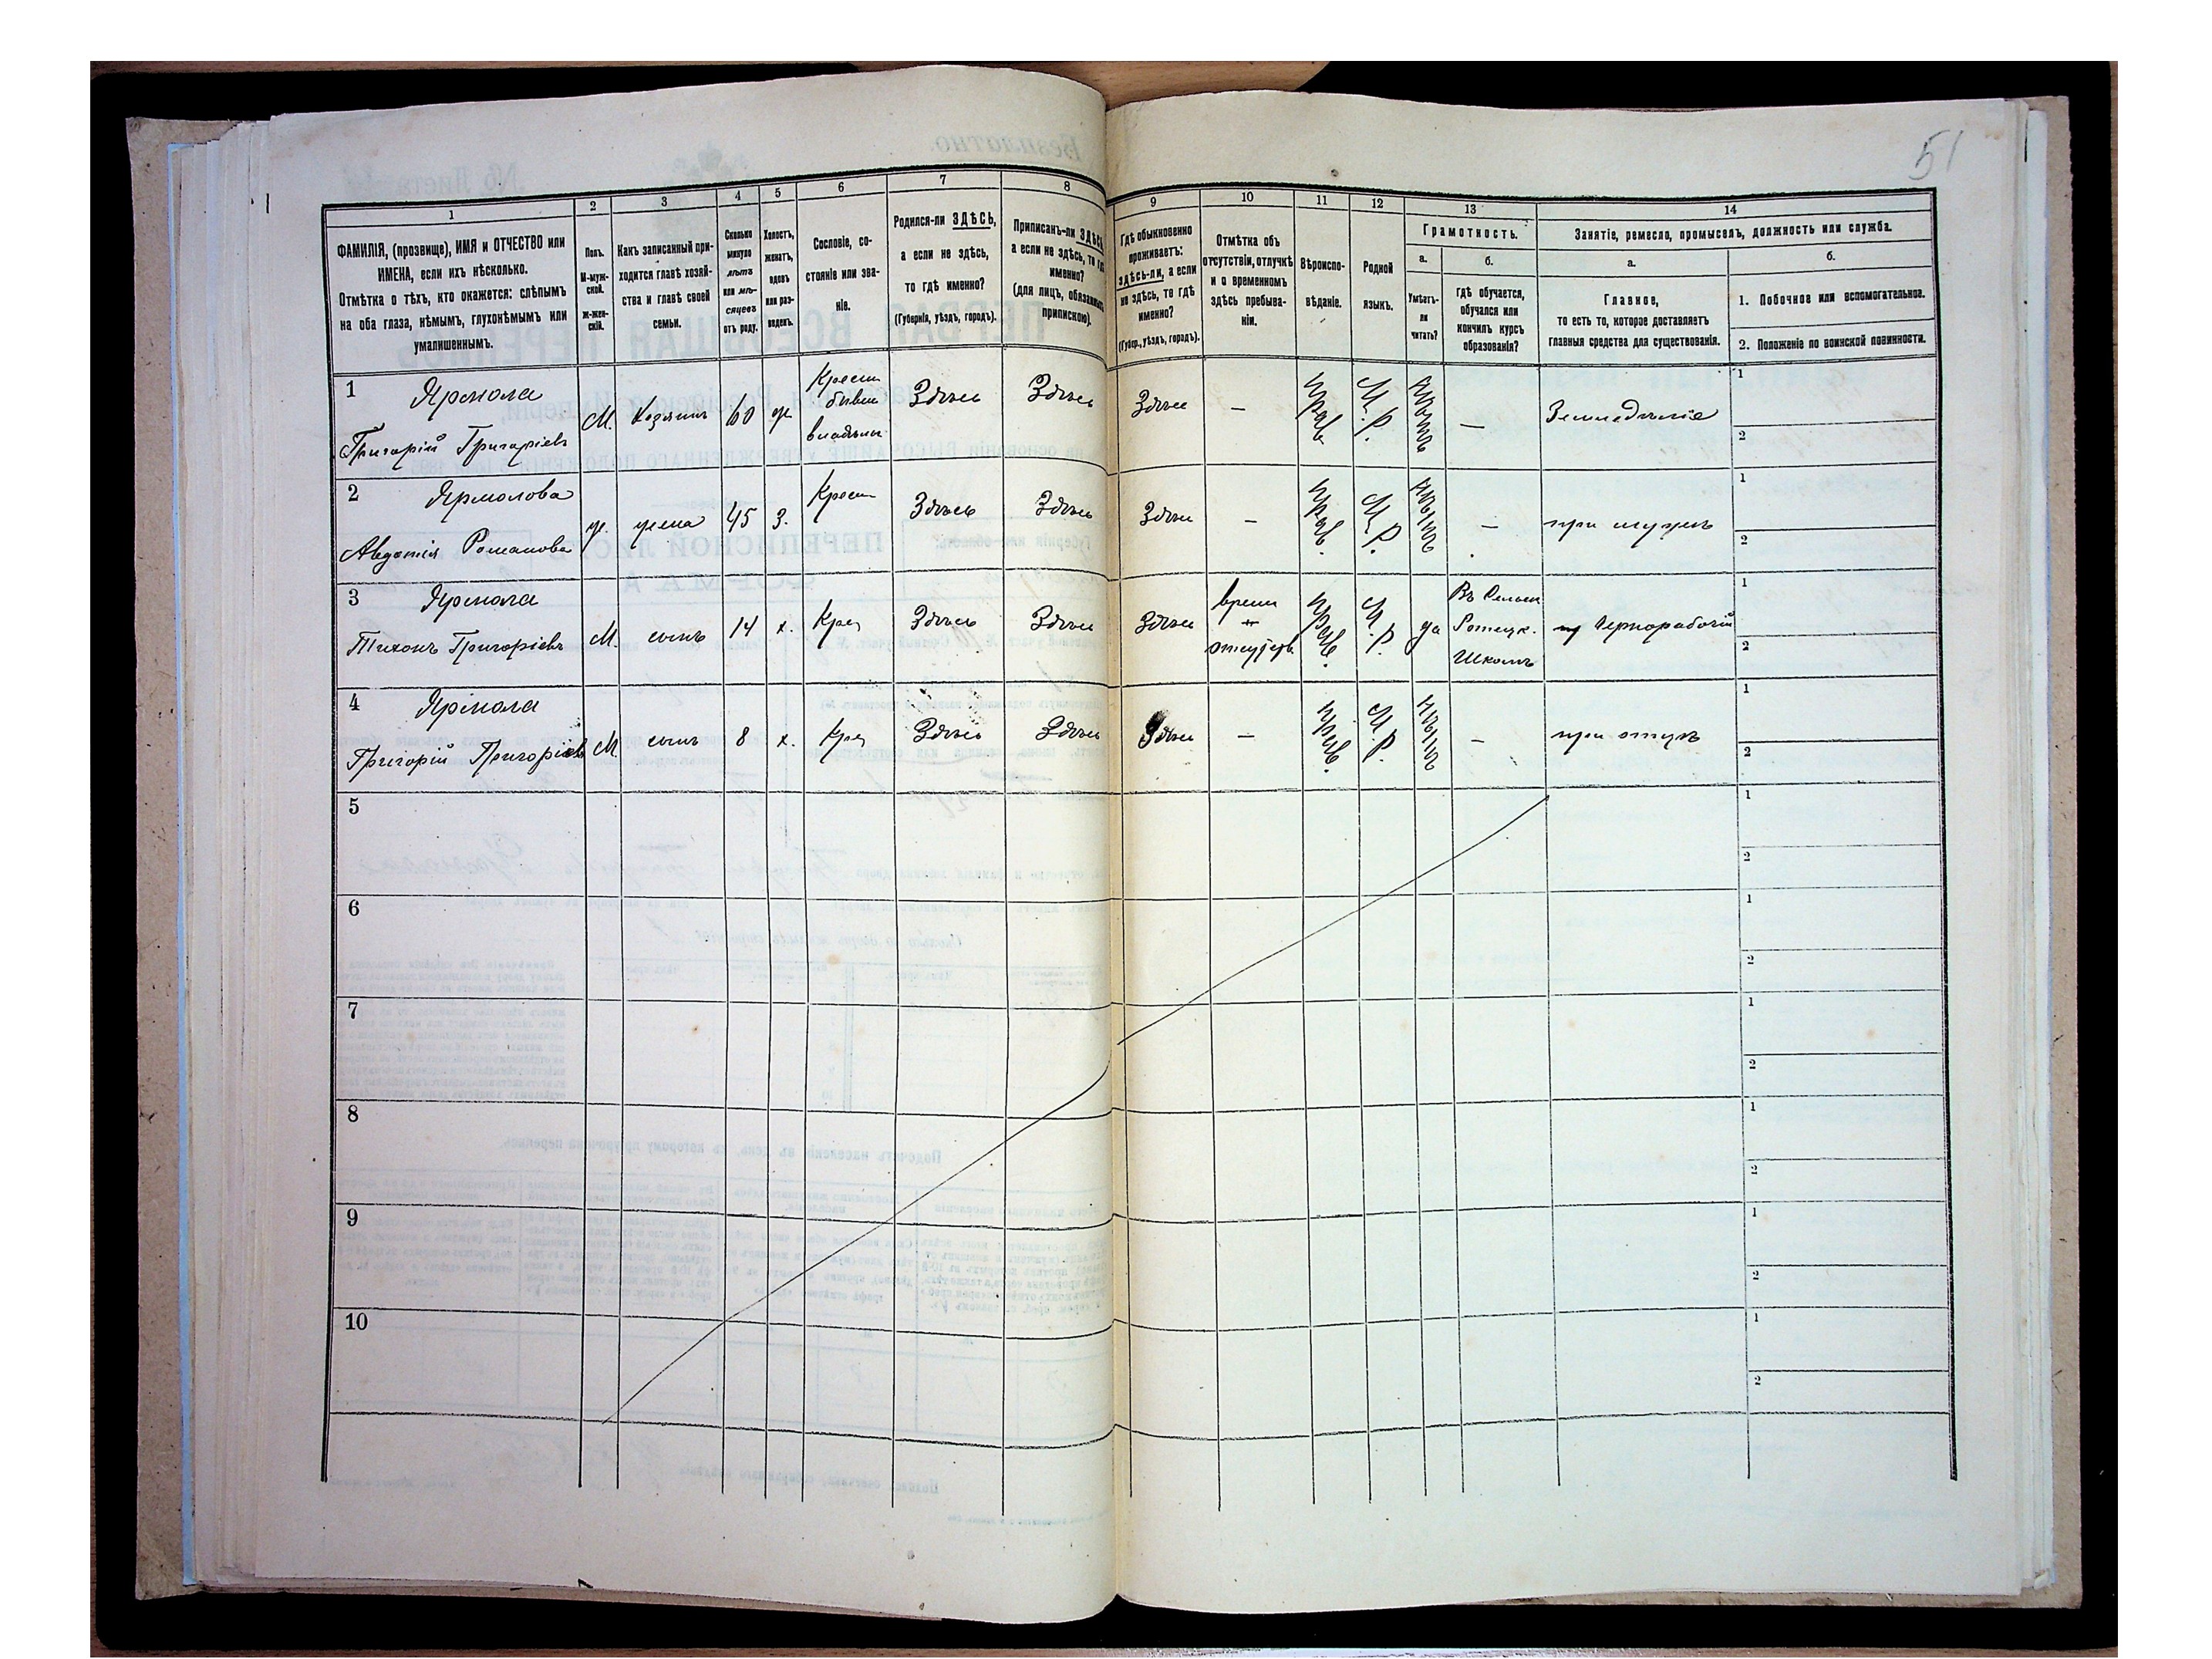 51
1
2
3
4
5
6
7
8
9
10
11
12
13
14
ФАМИЛІЯ, (прозвище), ИМЯ и ОТЧЕСТВО или
ИМЕНА, если ихъ нѣсколько.
Отмѣтка о тѣхъ, кто окажется: слѣпымъ
на оба глаза, нѣмымъ, глухонѣмымъ или
умалишеннымъ.
Полъ.
М-муж-
ской.
ж-жен-
скій.
Какъ записанный при-
ходится главѣ хозяй-
ства и главѣ своей
семьи.
Сколько
минуло
лѣтъ
или мѣ-
сяцевъ
отъ роду.
Холостъ,
женатъ,
вдовъ
или раз-
веденъ.
Сословіе, со-
стояніе или зва-
ніе.
Родился-ли ЗДѢСЬ,
а если не здѣсь,
то гдѣ именно?
(Губернія, уѣздъ, городъ).
Приписанъ-ли ЗДѢСЬ,
а если не здѣсь, то гдѣ
именно?
(для лицъ, обязанныхъ
припискою).
Гдѣ обыкновенно
проживаетъ:
здѣсь-ли, а если
не здѣсь, то гдѣ
именно?
(Губер., уѣздъ, городъ).
Отмѣтка объ
отсутствіи, отлучкѣ
и о временномъ
здѣсь пребыва-
ніи.
Вѣроиспо-
вѣданіе.
Родной
языкъ.
Грамотность.
а.
б.
Умѣетъ-
ли
читать?
Гдѣ обучается,
обучался или
кончилъ курсъ
образованія?
Занятіе, ремесло, промыселъ, должность или служба.
а.
б.
Главное,
то есть то, которое доставляетъ
главныя средства для существованія.
1. Побочное или вспомогательное.
2. Положеніе по воинской повинности.
1 Ярмола
Григорій Григоріевъ
М. Хозяинъ 60 ж
Крест
бывш
владѣльч
Здѣсь Здѣсь Здѣсь — Прав. М.Р. нѣтъ — Земледѣліе
1
2
2 Ярмолова
Авдотія Романова
ж. жена 45 З. Крест Здѣсь Здѣсь Здѣсь — Прав. М.Р. нѣтъ — при мужѣ
1
2
3 Ярмола
Тихонъ Григоріевъ
М. сынъ 14 х. Крес Здѣсь Здѣсь Здѣсь
времен
Прав. М.Р. да
Въ Сельск
Школѣ
Чернорабочій
1
2
4 Ярмола
Григорій Григоріевъ
М сынъ 8 х. Крес Здѣсь Здѣсь Здѣсь — Прав. М.Р. нѣтъ — при отцѣ
1
2
5
1
2
6
1
2
7
1
2
8
1
2
9
1
2
10
1
2